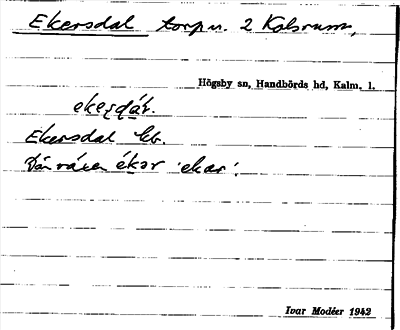 Ekersdal torpn. 2 Kolsrum,
Högsby sn, Handbörds hd, Kalm. l.
Ekersdal kb.
Där växer ékər 'ekar'.
Ivar Modéer 1942